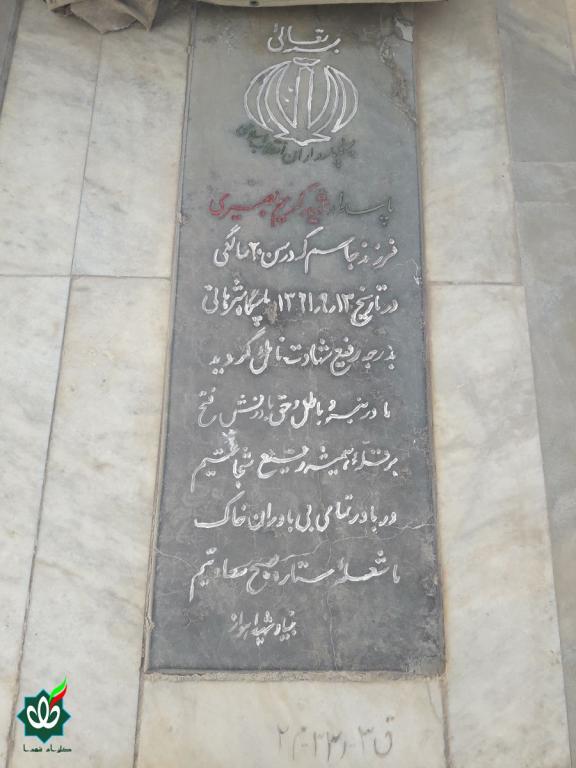 بسمه تعالی
سپاه پاسداران انقلاب اسلامی
پاسدار شهید کریم نصیری
فرزند جاسم که در سن ۲۰ سالگی
در تاریخ ۱۳۶۱٫۹٫۱۲ پاسگاه شرهانی
بدرجه رفیع شهادت نائل گردید
ما در نبرد باطل و حق با درفش فتح
بر قله همیشه رفیع شجاعتیم
در باور تمامی بی باوران خاک
ما شعله ستاره صبح سعادتیم
بنیاد شهید اهواز
ق۳-ر۳۳-م۲
گلزار شهدا